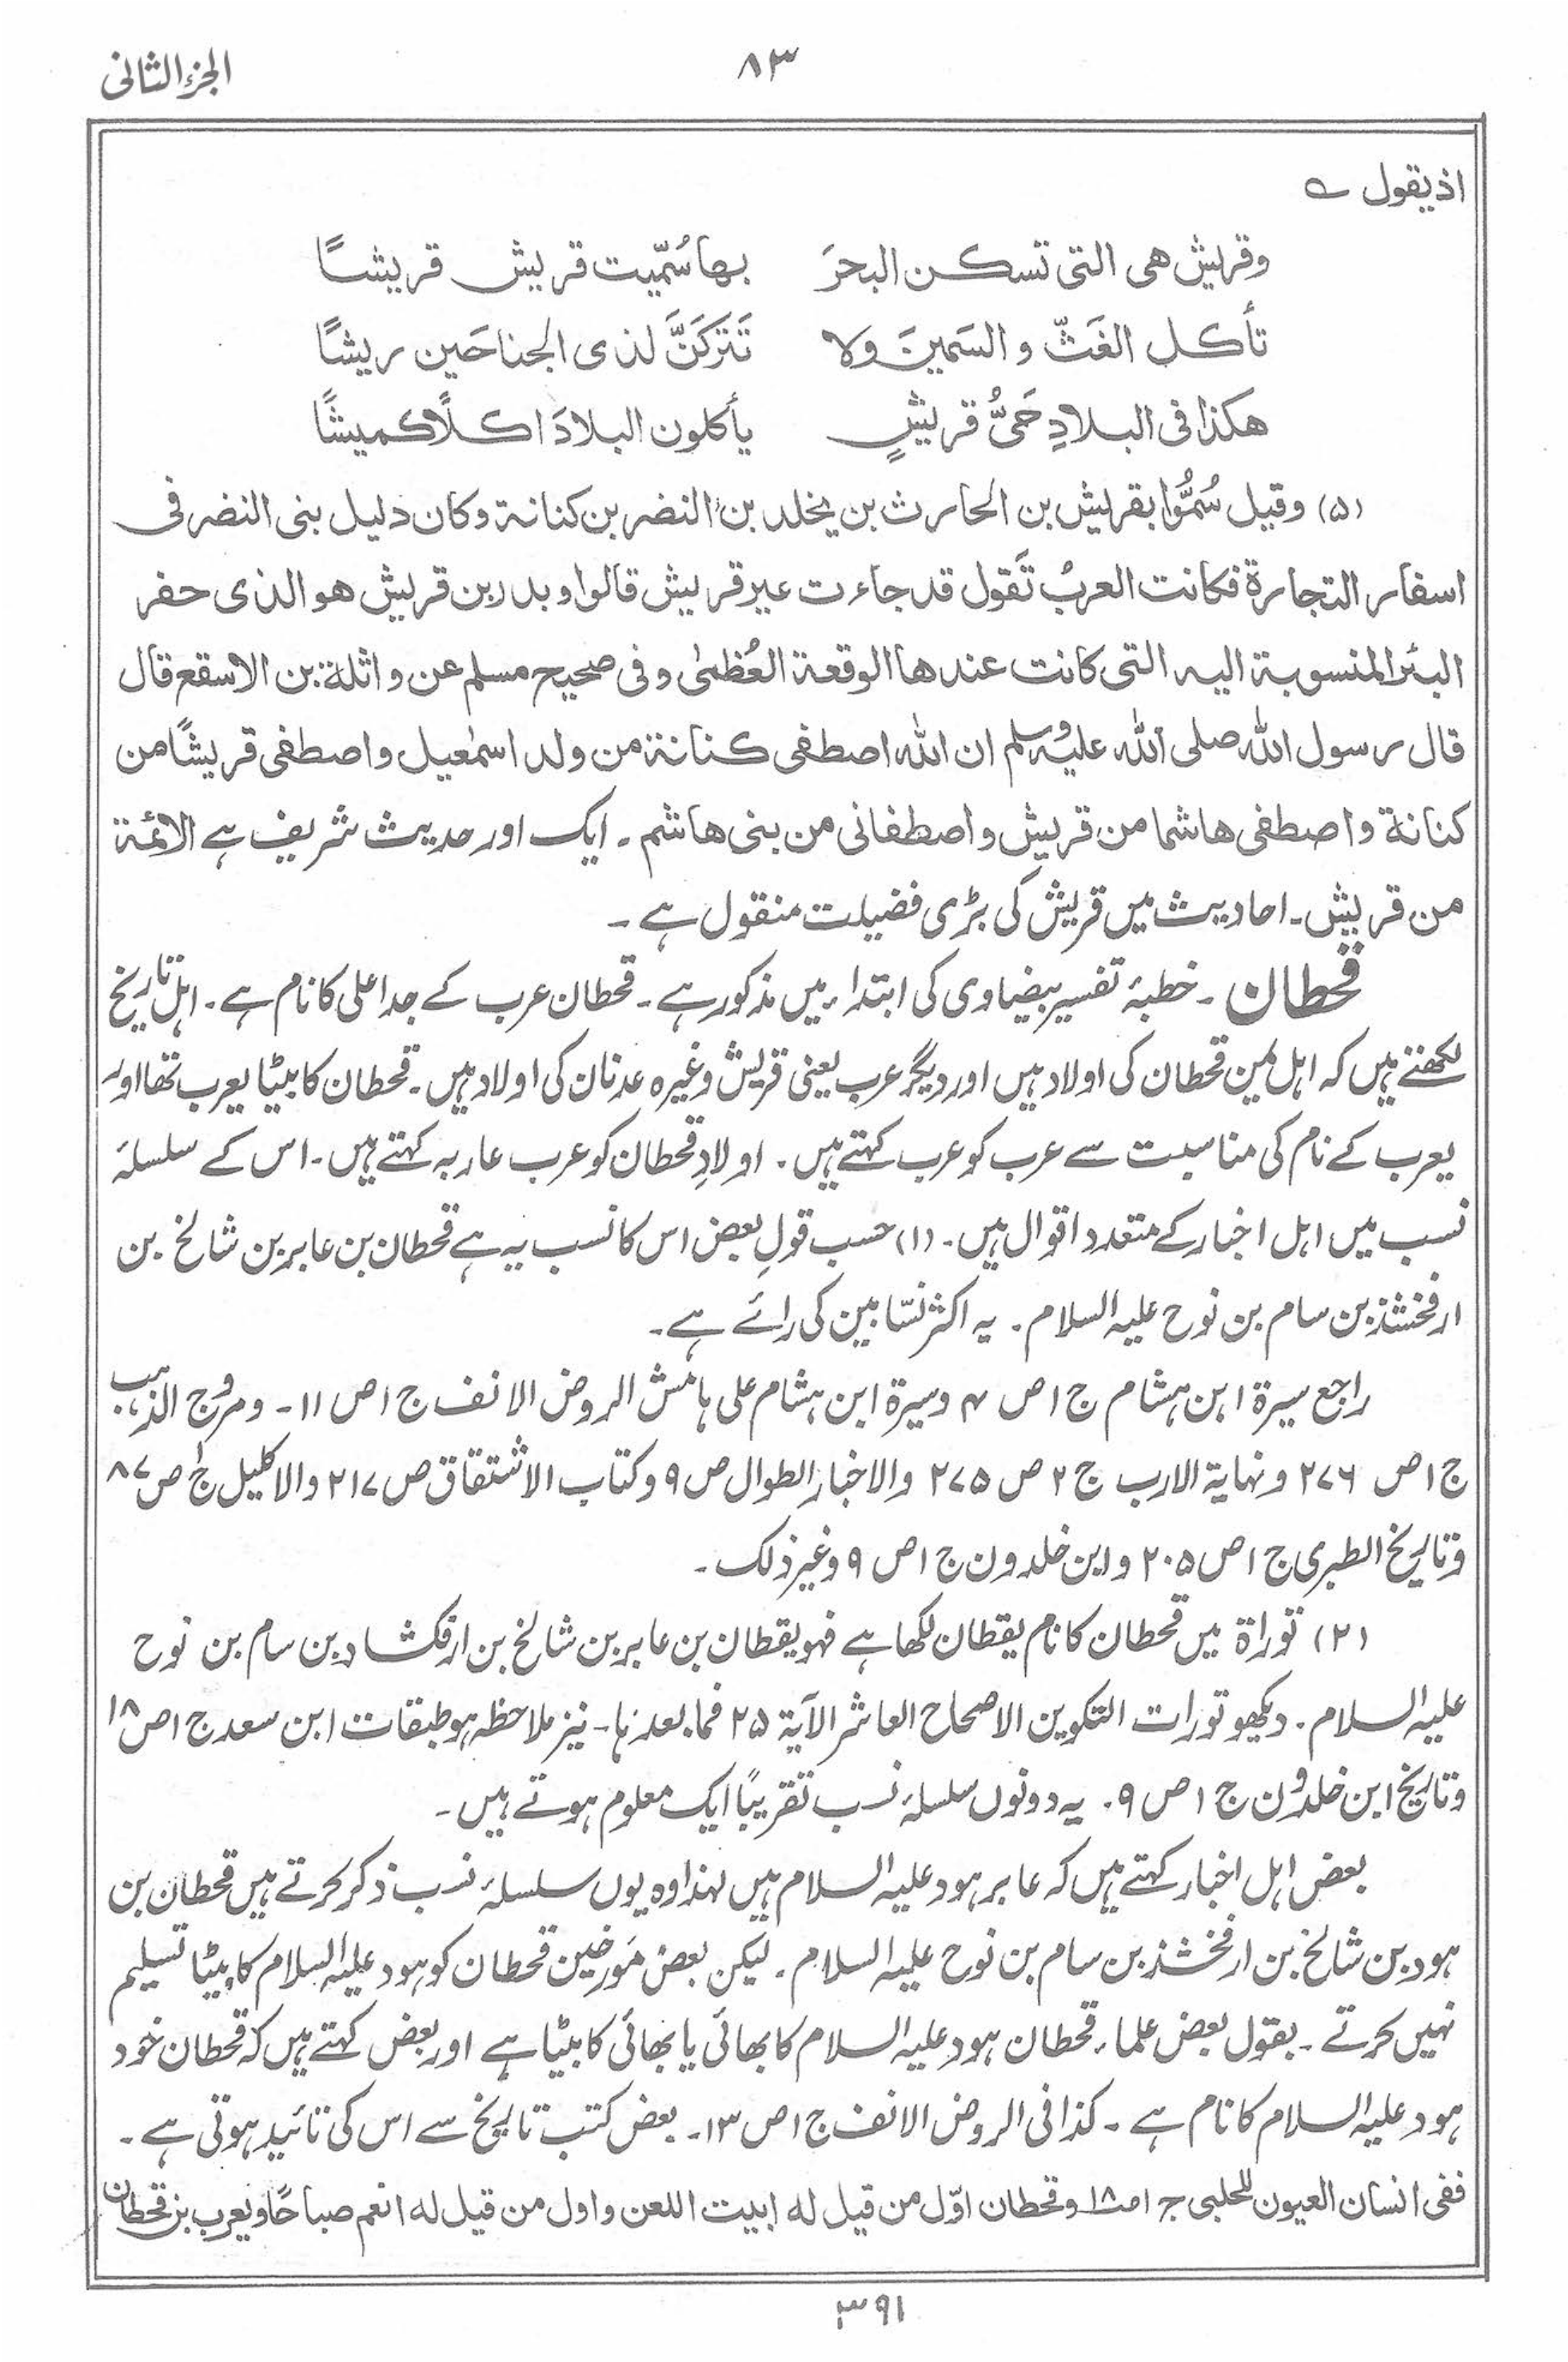 الجزء الثانی
۸۳
اذ یقول ؎
وقریش هی التی تسکن البحرَ    بها سُمّیت قریش قریشًا
تأکل الغَثّ و السَمینَ ولا    تَترکَنَّ لذی الجناحَین ریشًا
هکذا فی البلادِ حَیُّ قریشٍ    یأکلون البلادَ اکلًا کمیشًا
(۵) وقیل سُمُّوا بقریش بن الحارث بن یخلد بن النضر بن کنانة وکان دلیل بنی النضر فی
اسفار التجارة فکانت العربُ تَقول قد جاءت عیر قریش قالوا و بدر بن قریش هو الذی حفر
البئر المنسوبة الیه التی کانت عندها الوقعة العُظمٰی وفی صحیح مسلم عن واثلة بن الاسقع قال
قال رسول الله صلی الله علیہ وسلم ان الله اصطفی کنانة من ولد اسمٰعیل واصطفی قریشًا من
کنانة واصطفی هاشما من قریش واصطفانی من بنی هاشم ۔ ایک اور حدیث شریف ہے الائمة
من قریش ۔ احادیث میں قریش کی بڑی فضیلت منقول ہے ۔
قحطان ۔ خطبۂ تفسیر بیضاوی کی ابتداء میں مذکور ہے ۔ قحطان عرب کے جد اعلی کا نام ہے ۔ اہل تاریخ
لکھتے ہیں کہ اہل یمن قحطان کی اولاد ہیں اور دیگر عرب یعنی قریش وغیرہ عدنان کی اولاد ہیں ۔ قحطان کا بیٹا یعرب تھا اور
یعرب کے نام کی مناسبت سے عرب کو عرب کہتے ہیں ۔ اولادِ قحطان کو عرب عاربہ کہتے ہیں ۔ اس کے سلسلۂ
نسب میں اہل اخبار کے متعدد اقوال ہیں ۔ (۱) حسب قولِ بعض اس کا نسب یہ ہے قحطان بن عابر بن شالخ بن
ارفخشذ بن سام بن نوح علیہ السلام ۔ یہ اکثر نسّابین کی رائے ہے ۔
راجع سیرة ابن ہشام ج ۱ ص ۴ وسیرة ابن ہشام علی ہامش الروض الانف ج ۱ ص ۱۱ ۔ ومروج الذہب
ج ۱ ص ۲۷۶ ونہایة الارب ج ۲ ص ۲۷۵ والاخبار الطوال ص ۹ وکتاب الاشتقاق ص ۲۱۷ والاکلیل ج ۱ ص ۸۷
وتاریخ الطبری ج ۱ ص ۲۰۵ وابن خلدون ج ۱ ص ۹ وغیر ذلک ۔
(۲) توراة میں قحطان کا نام یقطان لکھا ہے فہو یقطان بن عابر بن شالخ بن ارفکشاد بن سام بن نوح
علیہ السلام ۔ دیکھو تورات التکوین الاصحاح العاشر الآیة ۲۵ فما بعدہا ۔ نیز ملاحظہ ہو طبقات ابن سعد ج ۱ ص ۱۸
وتاریخ ابن خلدون ج ۱ ص ۹ ۔ یہ دونوں سلسلۂ نسب تقریبًا ایک معلوم ہوتے ہیں ۔
بعض اہل اخبار کہتے ہیں کہ عابر ہود علیہ السلام ہیں لہذا وہ یوں سلسلۂ نسب ذکر کرتے ہیں قحطان بن
ہود بن شالخ بن ارفخشذ بن سام بن نوح علیہ السلام ۔ لیکن بعض مؤرخین قحطان کو ہود علیہ السلام کا بیٹا تسلیم
نہیں کرتے ۔ بقول بعض علماء قحطان ہود علیہ السلام کا بھائی یا بھائی کا بیٹا ہے اور بعض کہتے ہیں کہ قحطان خود
ہود علیہ السلام کا نام ہے ۔ کذا فی الروض الانف ج ۱ ص ۱۳ ۔ بعض کتب تاریخ سے اس کی تائید ہوتی ہے ۔
ففی انسان العیون للحلبی ج ۱ ص ۱۸ وقحطان اوّل من قیل له ابیت اللعن واول من قیل له انعم صباحًا ویعرب بن قحطان
۳۹۱